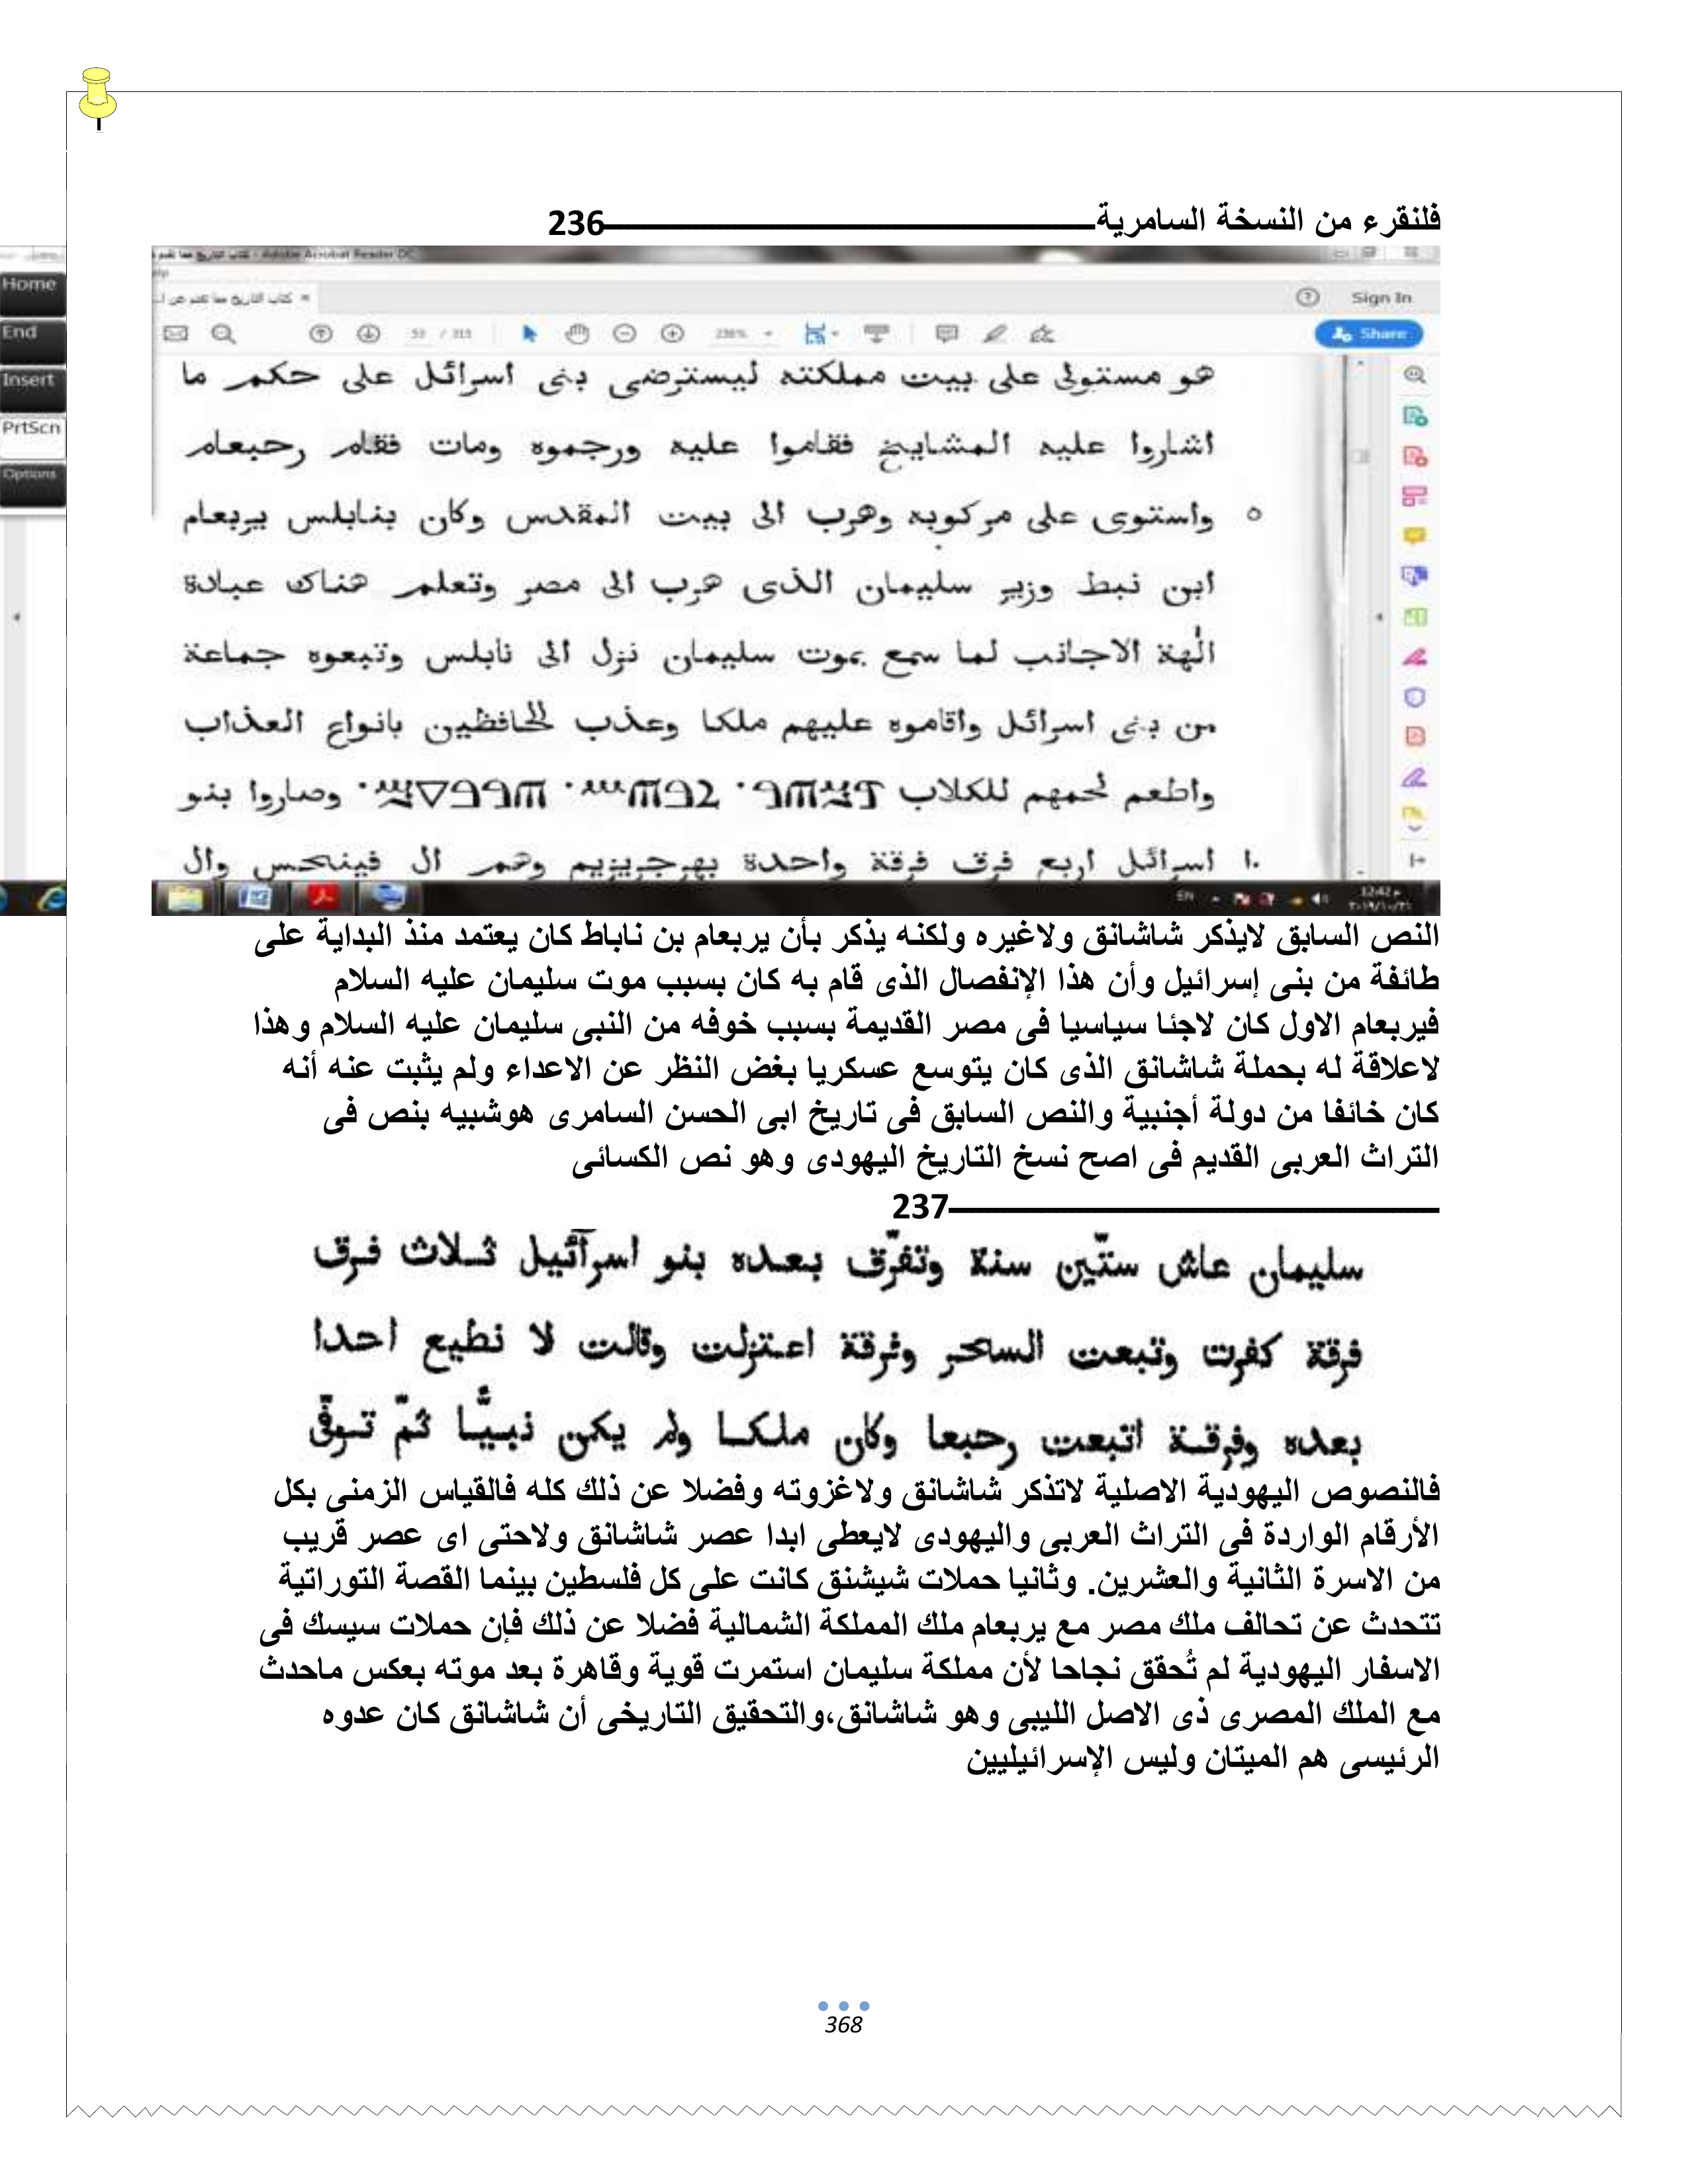 فلنقرء من النسخة السامرية ـــــــــــــــــــــــــــــــــ236
كتاب التاريخ مما تقدم - Adobe Acrobat Reader DC
كتاب التاريخ مما تقدم عن ا...
Sign In
53 / 315
236%
Share
Home
End
Insert
PrtScn
Options
هو مستولى على بيت مملكته ليسترضى بنى اسرائل على حكم ما
اشاروا عليه المشايخ فقاموا عليه ورجموه ومات فقام رحبعام
٥ واستوى على مركوبه وهرب الى بيت المقدس وكان بنابلس يربعام
ابن نبط وزير سليمان الذى هرب الى مصر وتعلم هناك عبادة
الهة الاجانب لما سمع بموت سليمان نزل الى نابلس وتبعوه جماعة
من بنى اسرائل واقاموه عليهم ملكا وعذب الحافظين بانواع العذاب
واطعم لحمهم للكلاب وصاروا بنو
١٠ اسرائل اربع فرق فرقة واحدة بهرجريزيم وهم ال فينحس وال
EN
12:42 م
النص السابق لايذكر شاشانق ولاغيره ولكنه يذكر بأن يربعام بن ناباط كان يعتمد منذ البداية على
طائفة من بنى إسرائيل وأن هذا الإنفصال الذى قام به كان بسبب موت سليمان عليه السلام
فيربعام الاول كان لاجئا سياسيا فى مصر القديمة بسبب خوفه من النبى سليمان عليه السلام وهذا
لاعلاقة له بحملة شاشانق الذى كان يتوسع عسكريا بغض النظر عن الاعداء ولم يثبت عنه أنه
كان خائفا من دولة أجنبية والنص السابق فى تاريخ ابى الحسن السامرى هوشبيه بنص فى
التراث العربى القديم فى اصح نسخ التاريخ اليهودى وهو نص الكسائى
ـــــــــــــــــــــــــــــــــ237
سليمان عاش ستّين سنة وتفرّق بعده بنو اسرآئيل ثلاث فرق
فرقة كفرت وتبعت السحر وفرقة اعتزلت وقالت لا نطيع احدا
بعده وفرقة اتبعت رحبعا وكان ملكا ولم يكن نبيًّا ثمّ توفّى
فالنصوص اليهودية الاصلية لاتذكر شاشانق ولاغزوته وفضلا عن ذلك كله فالقياس الزمنى بكل
الأرقام الواردة فى التراث العربى واليهودى لايعطى ابدا عصر شاشانق ولاحتى اى عصر قريب
من الاسرة الثانية والعشرين. وثانيا حملات شيشنق كانت على كل فلسطين بينما القصة التوراتية
تتحدث عن تحالف ملك مصر مع يربعام ملك المملكة الشمالية فضلا عن ذلك فإن حملات سيسك فى
الاسفار اليهودية لم تُحقق نجاحا لأن مملكة سليمان استمرت قوية وقاهرة بعد موته بعكس ماحدث
مع الملك المصرى ذى الاصل الليبى وهو شاشانق،والتحقيق التاريخى أن شاشانق كان عدوه
الرئيسى هم الميتان وليس الإسرائيليين
368